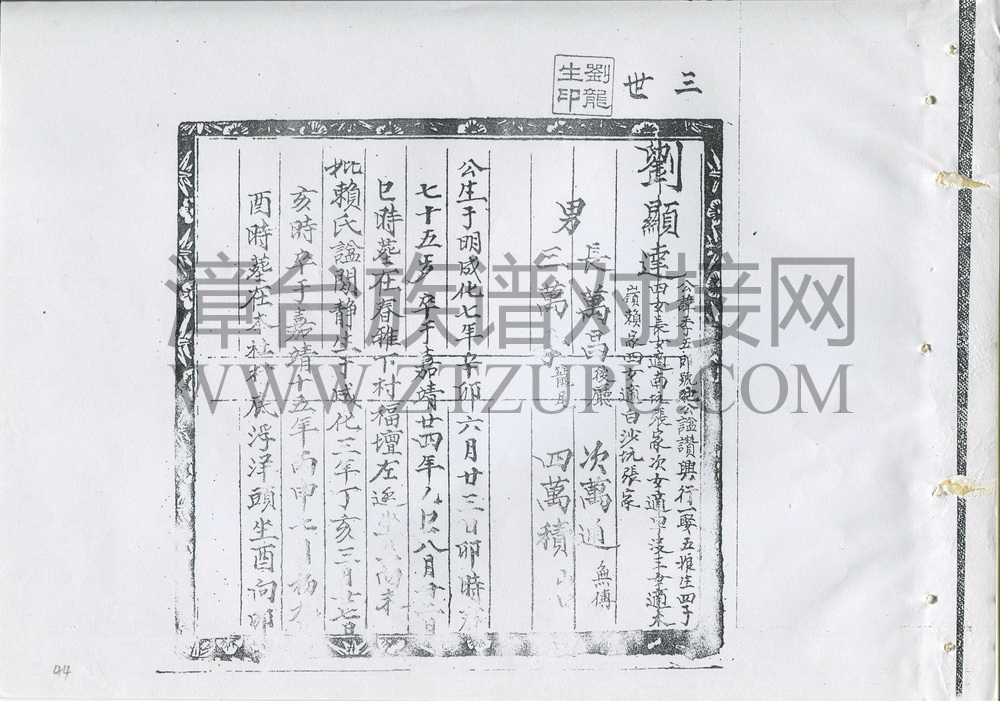 三世
劉龍
生印
劉顯達
公諱 五郎號 公謚讚興行一零五 生四子
四女長女適南坑張家次女適 三女適木
嶺賴家四女適白沙坑張家
男
長萬昌 次萬 無傳
三萬 四萬積
公生于明成化七年辛卯六月廿三日卯時
七十五歲卒于嘉靖廿四年 巳八月 日
巳時塟在春雅下村福壇左
妣賴氏謚閒静生于成化三年丁亥三月 七日
亥時卒于嘉靖十五年丙申七
酉時塟在本社村尾浮洋頭坐酉向卯
漳台族谱对接网
WWW.ZTZUPU.COM
44